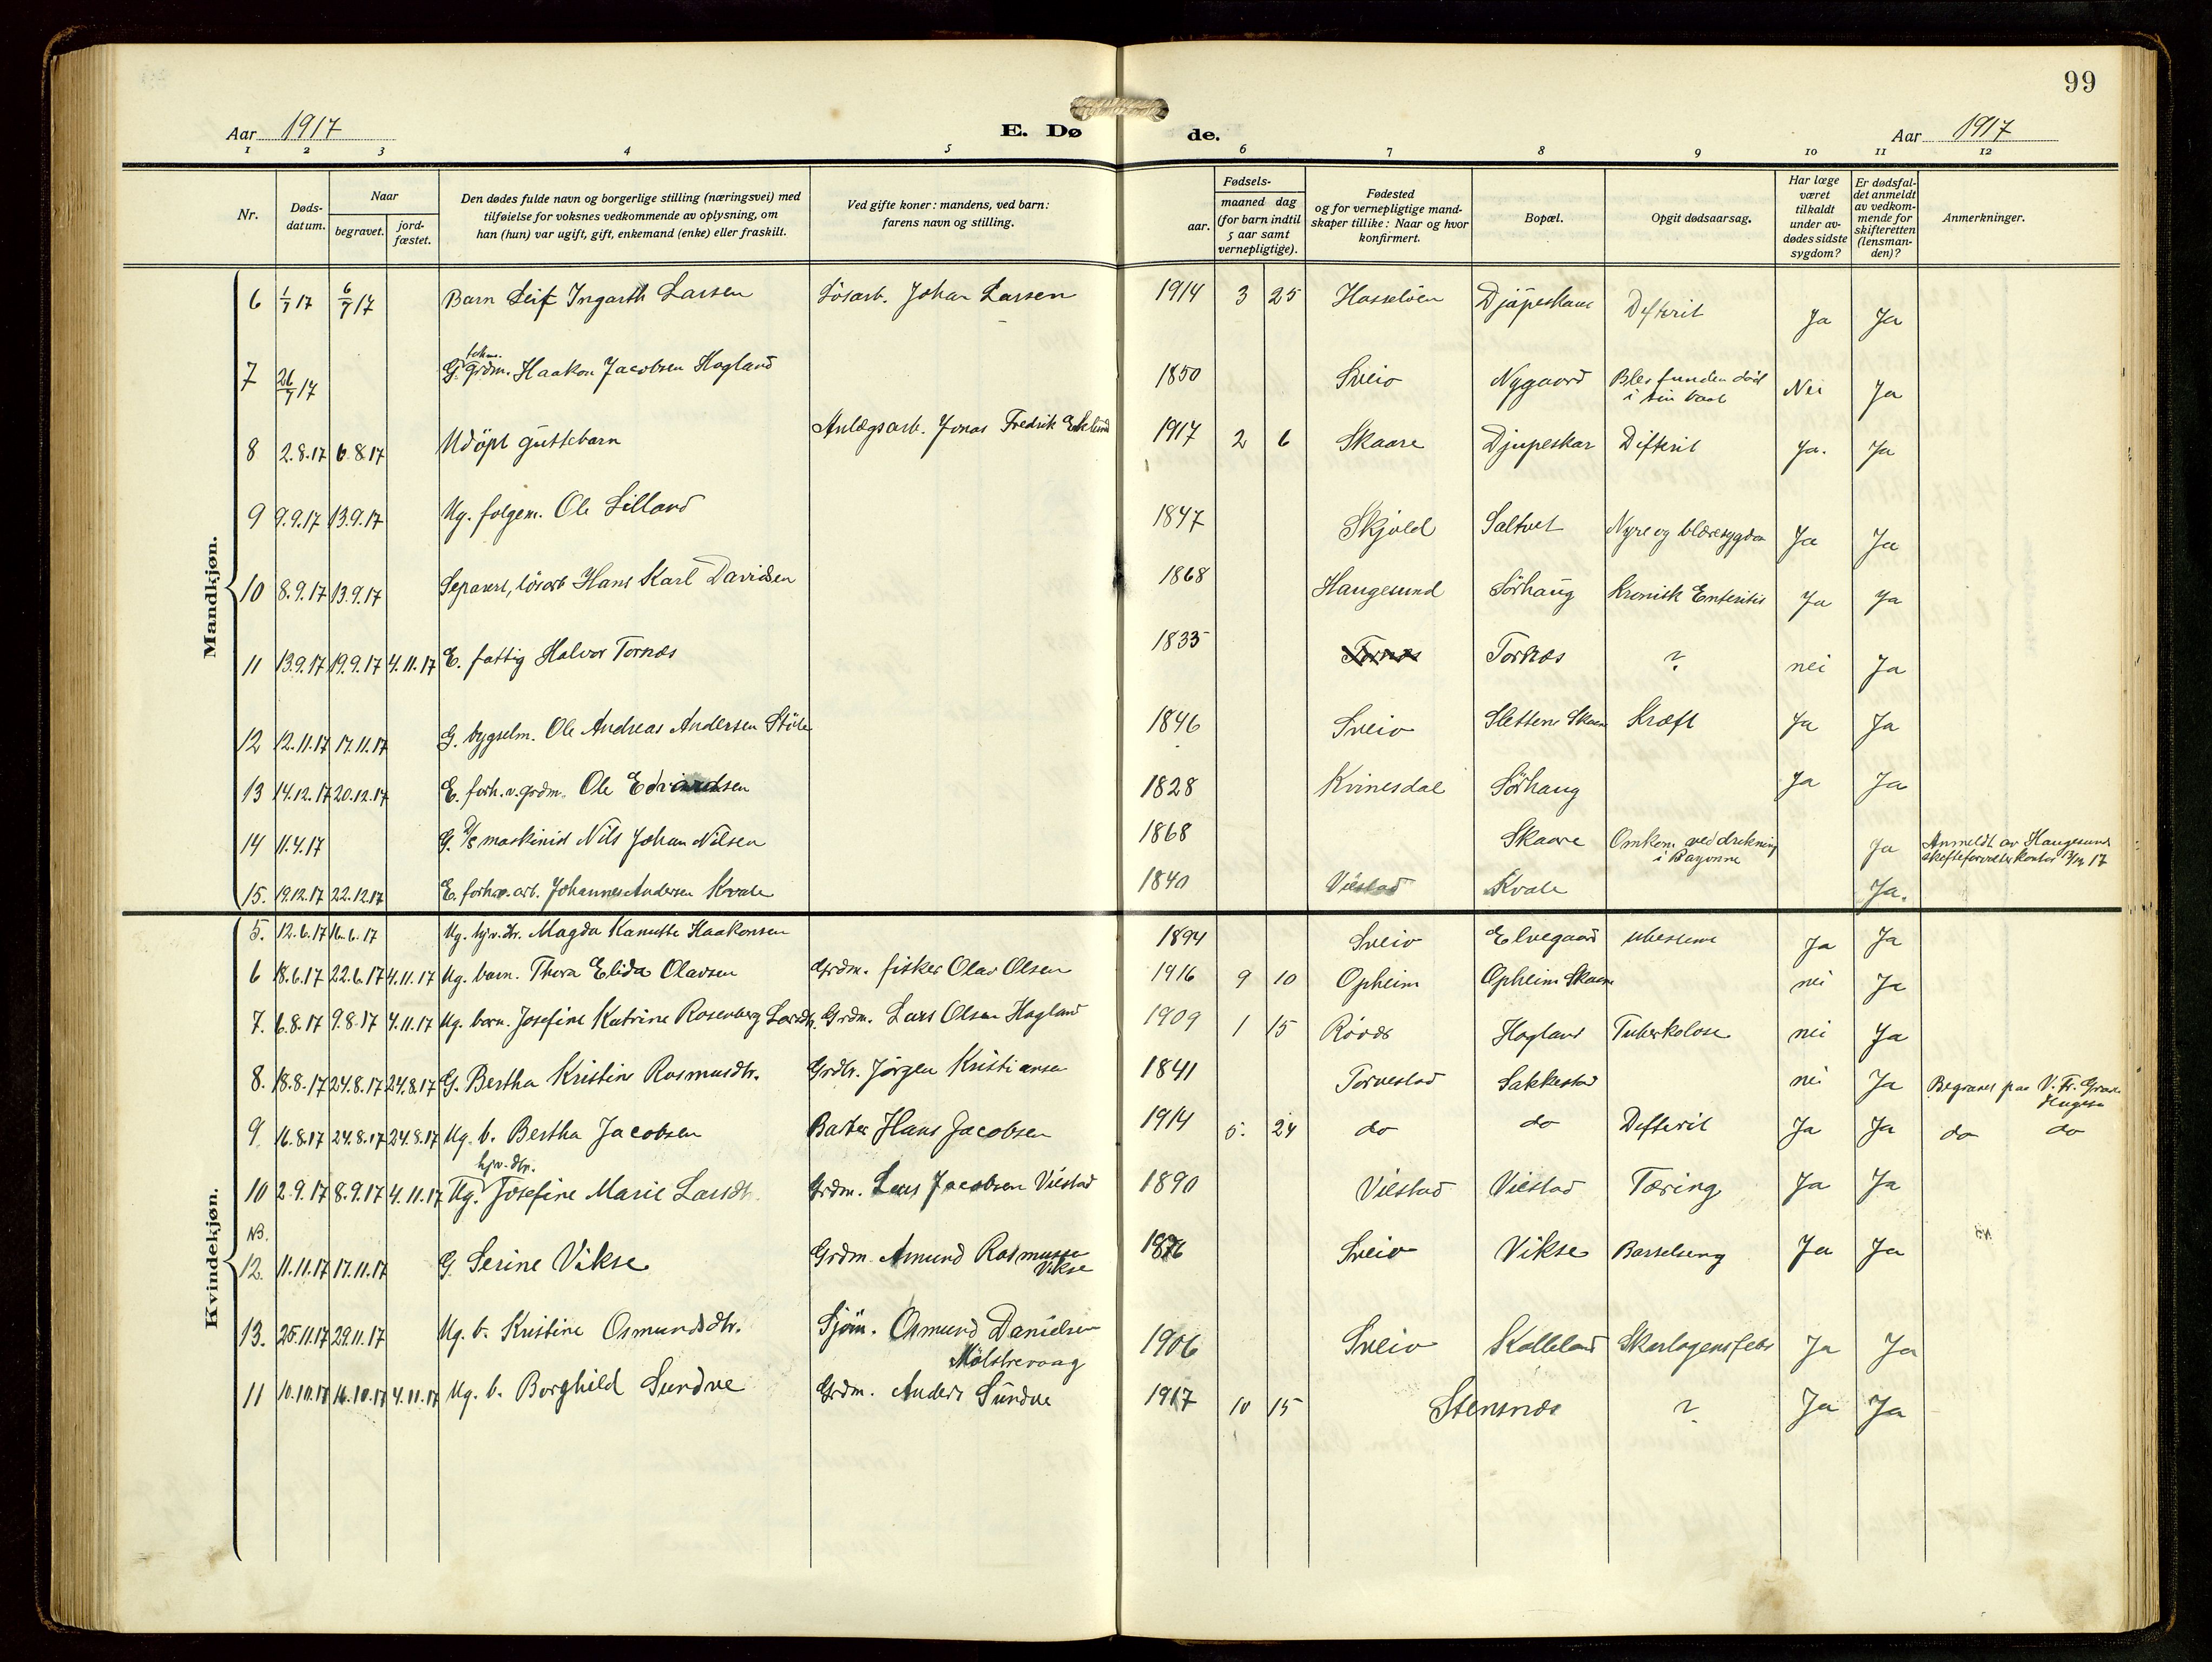 99
Aar 1917 E. Dø de. Aar 1917
1 2 3 4 5 6 7 8 9 10 11 12
Nr. Døds-datum. Naar begravet. jord-fæstet. Den dødes fulde navn og borgerlige stilling (næringsvei) med tilføielse for voksnes vedkommende av oplysning, om han (hun) var ugift, gift, enkemand (enke) eller fraskilt. Ved gifte koner: mandens, ved barn: farens navn og stilling. Fødsels- aar. maaned dag (for barn indtil 5 aar samt vernepligtige). Fødested og for vernepligtige mand-skaper tillike: Naar og hvor konfirmert. Bopæl. Opgit dødsaarsag. Har læge været tilkaldt under av-dødes sidste sygdom? Er dødsfal-det anmeldt av vedkom-mende for skifteretten (lensman-den)? Anmerkninger.
Mandkjøn.
6 1/7 17 6/7 17 Barn Leif Ingarth Larsen Lösarb. Johan Larsen 1914 3 25 Hasseløen Djüpeskar Difterit Ja Ja
7 26/7 17 G. grdm. Haakon Jacobsen Hogland 1850 Sveio Nygaard Blev funden död i sin baat Nei Ja
8 2.8.17 6.8.17 Udöpt guttebarn Anlægsarb. Jonas Fredrik 1917 2 6 Skaare Djupeskar Difterit Ja. Ja
9 9.9.17 13.9.17 Ug. folgem. Ole Lilland 1847 Skjold Saltvet Nyre og blæresygdom Ja Ja
10 8.9.17 13.9.17 Separert, lösarb Hans Karl Davidsen 1868 Haugesund Sörhaug Kronisk Enteritis Ja Ja
11 13.9.17 19.9.17 4.11.17 E. fattig Halvor Tornæs 1833 Tornæs Tornæs ? nei Ja
12 12.11.17 17.11.17 G. bygselm. Ole Andreas Andersen Stöle 1846 Sveio Sletten Skaare Kræft Ja Ja
13 14.12.17 20.12.17 E. forh.v. grdm. Ole Edvardsen 1828 Kvinesdal Sörhaug Ja Ja
14 11.4.17 G. D/S maskinist Nils Johan Nilsen 1868 Skaare Omkom ved drukning i Bayonne Ja Anmeldt av Haugesund skifteforvalterkontor 17
15. 19.12.17 22.12.17 E. forhv. arb. Johannes Andersen Kvale 1840 Viestad Kvale Ja.
Kvindekjøn.
5. 12.6.17 16.6.17 Ug. hjv. dtr. Magda Kanutte Haakonsen 1894 Sveio Elvegaard ubestemt Ja Ja
6 18.6.17 22.6.17 4.11.17 Ug. barn. Thora Elida Olavsen Grdm. fisker Olav Olsen 1916 9 10 Opheim Opheim Skaare nei Ja
7. 6.8.17 9.8.17 4.11.17 Ug. barn. Josefine Katrine Rosenberg Larsdtr. Grdm. Lars Olsen Hogland 1909 1 15 Rövær Hogland Tuberkolose nei Ja
8. 18.8.17 24.8.17 24.8.17 G. Bertha Kristine Rasmusdtr. Grdbr. Jörgen Kristiansen 1841 Torvestad Sakkestad nei Ja Begravet paa V. Fr. Grav. Hauges.
9. 16.8.17 24.8.17 24.8.17 Ug. b. Bertha Jacobsen Hans Jacobsen 1914 5. 24 do do Difterit Ja Ja do do
10 2.9.17 8.9.17 4.11.17 Ug. hjv. dtr. Josefine Marie Larsdtr. Grdm. Lars Jacobsen Viestad 1890 Viestad Viestad Tæring Ja Ja
NB.
12. 11.11.17 17.11.17 G Serine Vikse Grdm. Amund Rasmussen Vikse 1876 Sveio Vikse Barselseng Ja Ja
13. 25.11.17 29.11.17 Ug. b. Kristine Osmundsdtr. Sjöm. Osmund Danielsen Mølstrevaag 1906 Sveio Kalleland Skarlagensfeber Ja Ja
11 10.10.17 16.10.17 4.11.17 Ug. b. Borghild Sundve Grdm. Anders Sundve 1917 10 15 Stensnæs ? Ja Ja